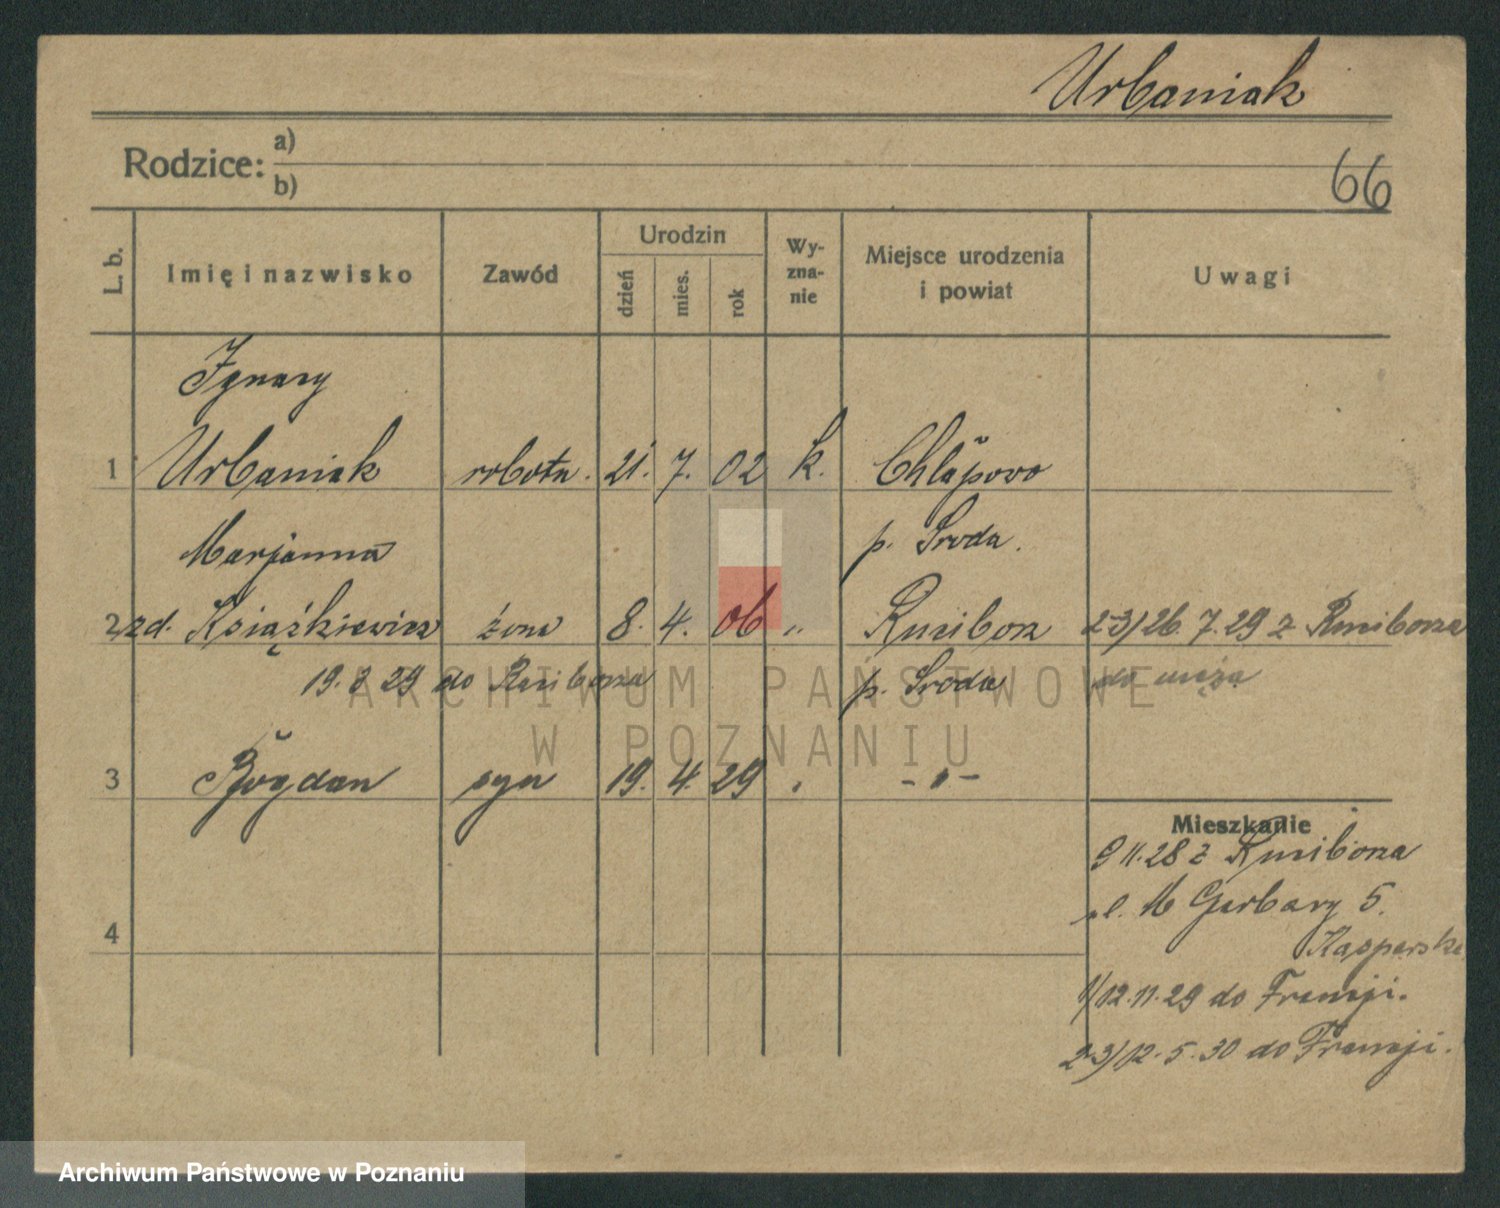 Urbaniak
Rodzice: a)
b)
66
L. b.
Imię i nazwisko
Zawód
Urodzin
dzień
mies.
rok
Wy-
zna-
nie
Miejsce urodzenia
i powiat
Uwagi
Ignacy
1 Urbaniak robotn. 21. 7. 02 k. Chłapowo
Marjanna p. Środa.
2 zd. Książkiewicz żona 8. 4. 06 „ Rusziborz 2-3) 26. 7. 29 z Rusziborza
19. 3 29 do Rusziborza p. Środa do męża
3 Bogdan syn 19. 4. 29 „ - „ -
4
Mieszkanie
9 11. 28 z Rusziborza
ul. M Garbary 5.
Kasperska
1/12. 11. 29 do Francji.
2-3) 12. 5. 30 do Francji.
ARCHIWUM PAŃSTWOWE
W POZNANIU
Archiwum Państwowe w Poznaniu